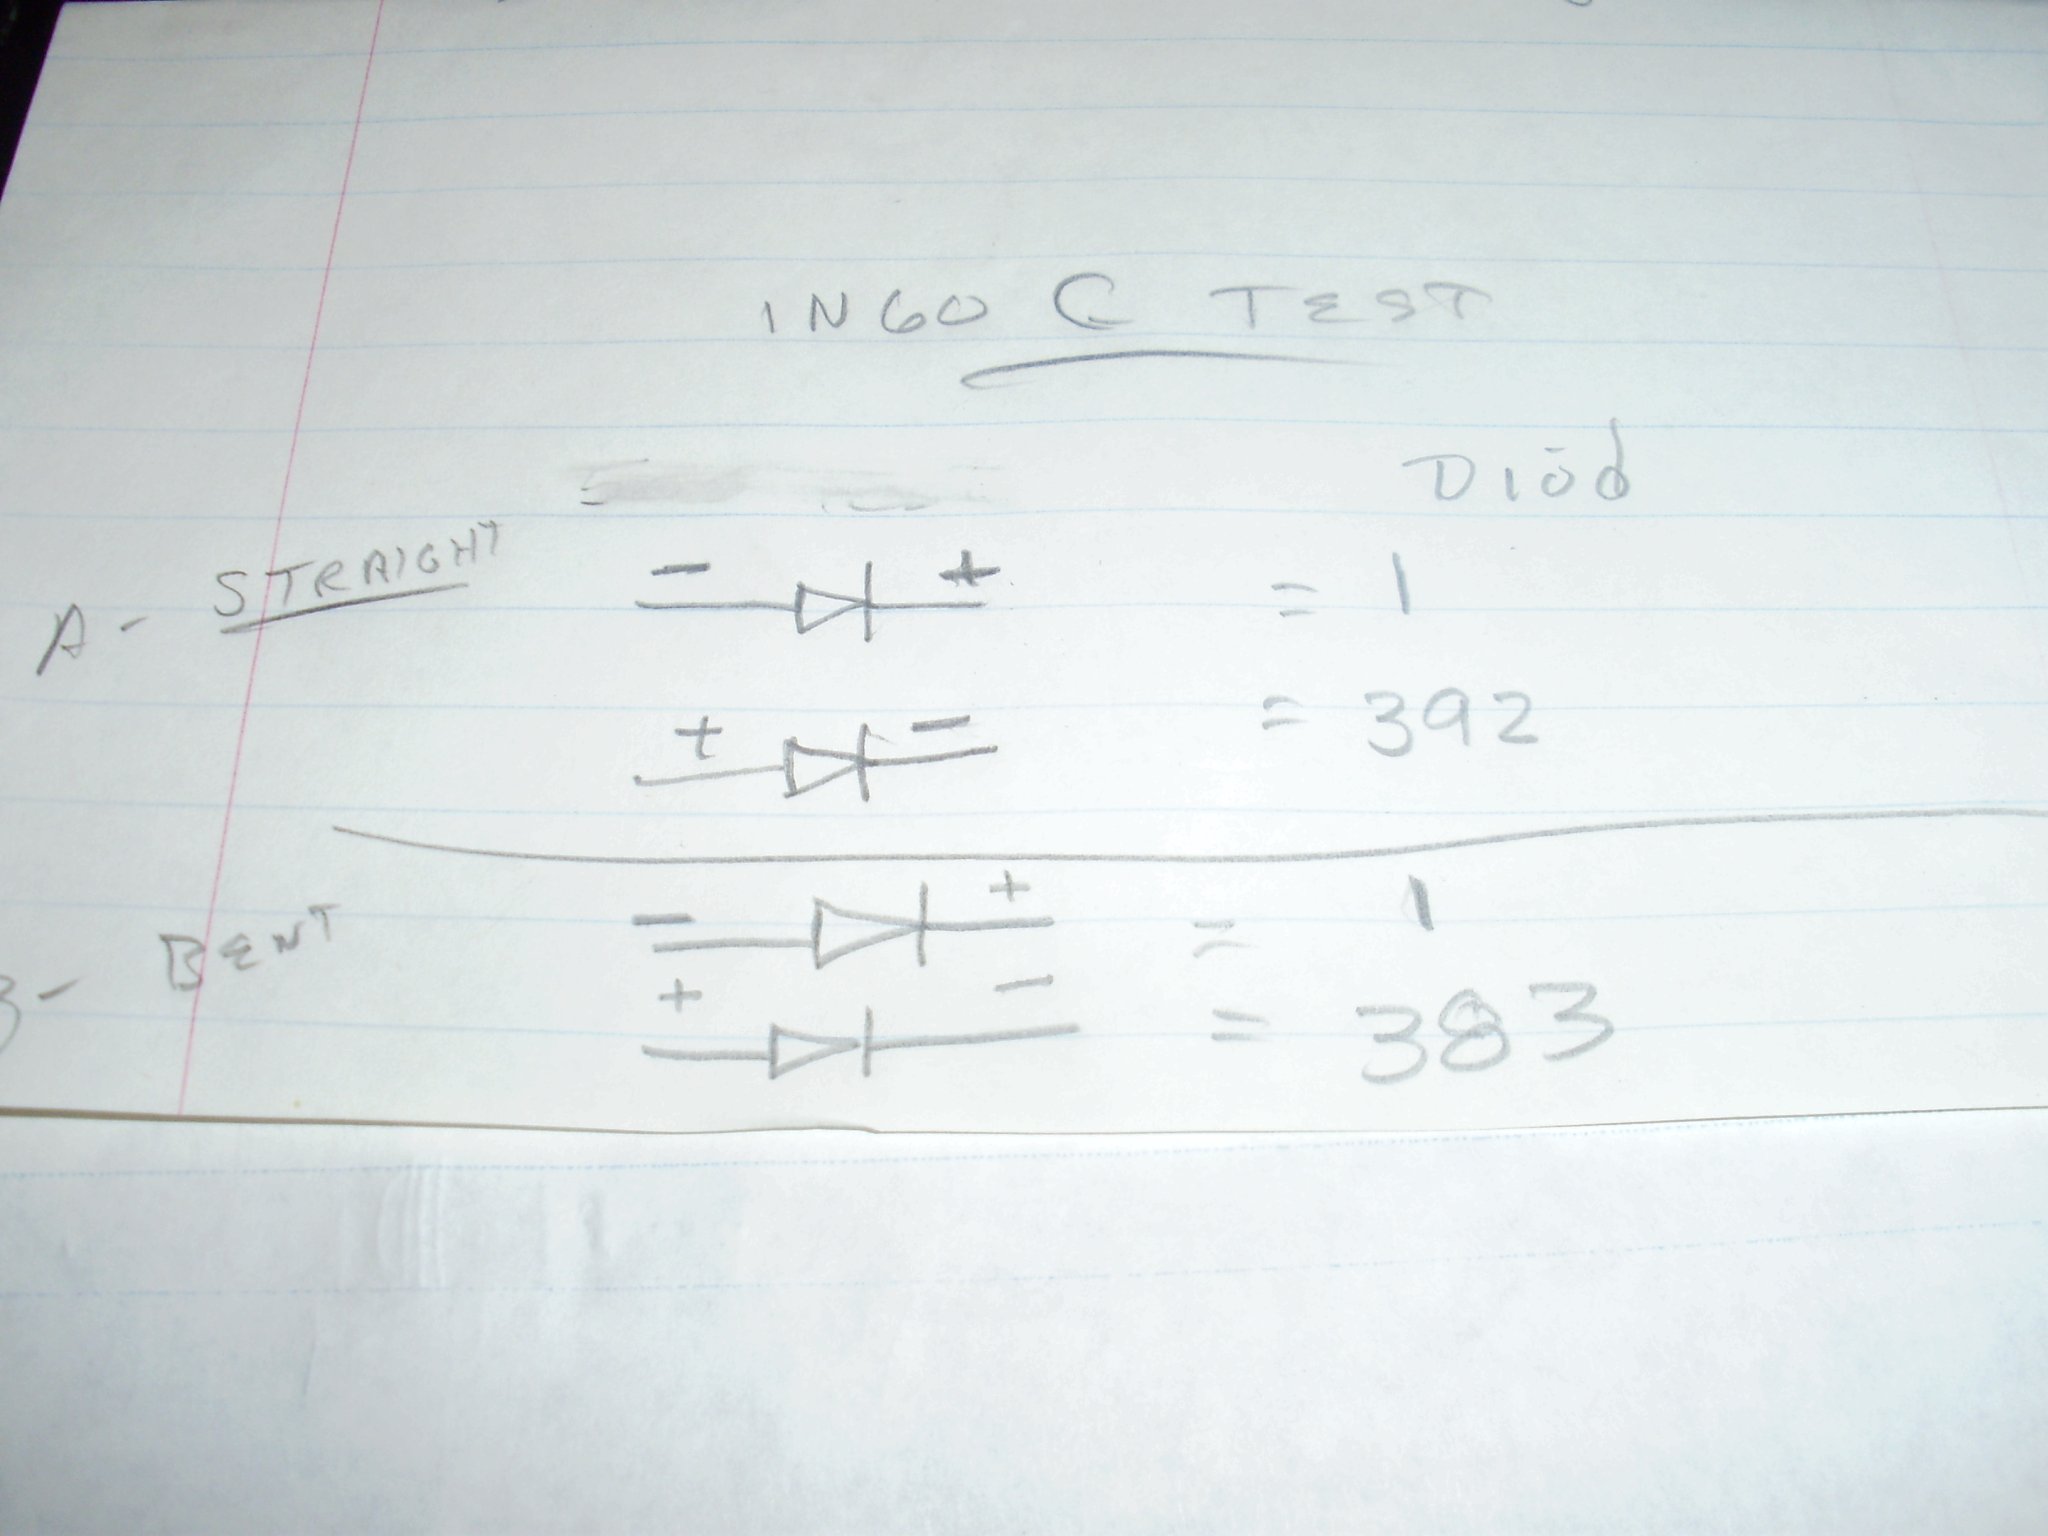 1N60 C TEST
Diōd
A- STRAIGHT - + = 1
+ - = 392
BENT - + = 1
+ - = 383